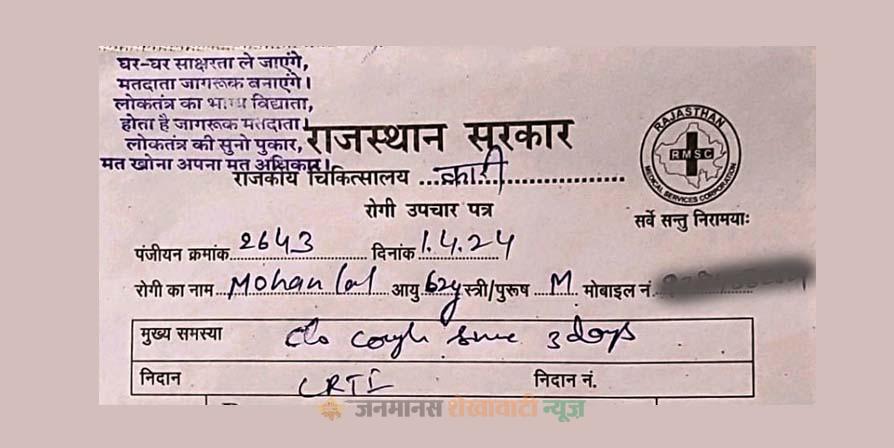 घर-घर साक्षरता ले जाएंगे,
मतदाता जागरूक बनाएंगे।
लोकतंत्र का भाग्य विद्याता,
होता है जागरूक मतदाता।
लोकतंत्र की सुनो पुकार,
मत खोना अपना मत अधिकार।
राजस्थान सरकार
राजकीय चिकित्सालय ...कारी...
रोगी उपचार पत्र
RAJASTHAN
RMSC
MEDICAL SERVICES CORPORATION
सर्वे सन्तु निरामयाः
पंजीयन क्रमांक 2643 दिनांक 1.4.24
रोगी का नाम Mohan lal आयु 62y स्त्री/पुरूष M. मोबाइल नं.
मुख्य समस्या c/o cough since 3 days
निदान LRTI निदान नं.
जनमानस शेखावाटी न्यूज़